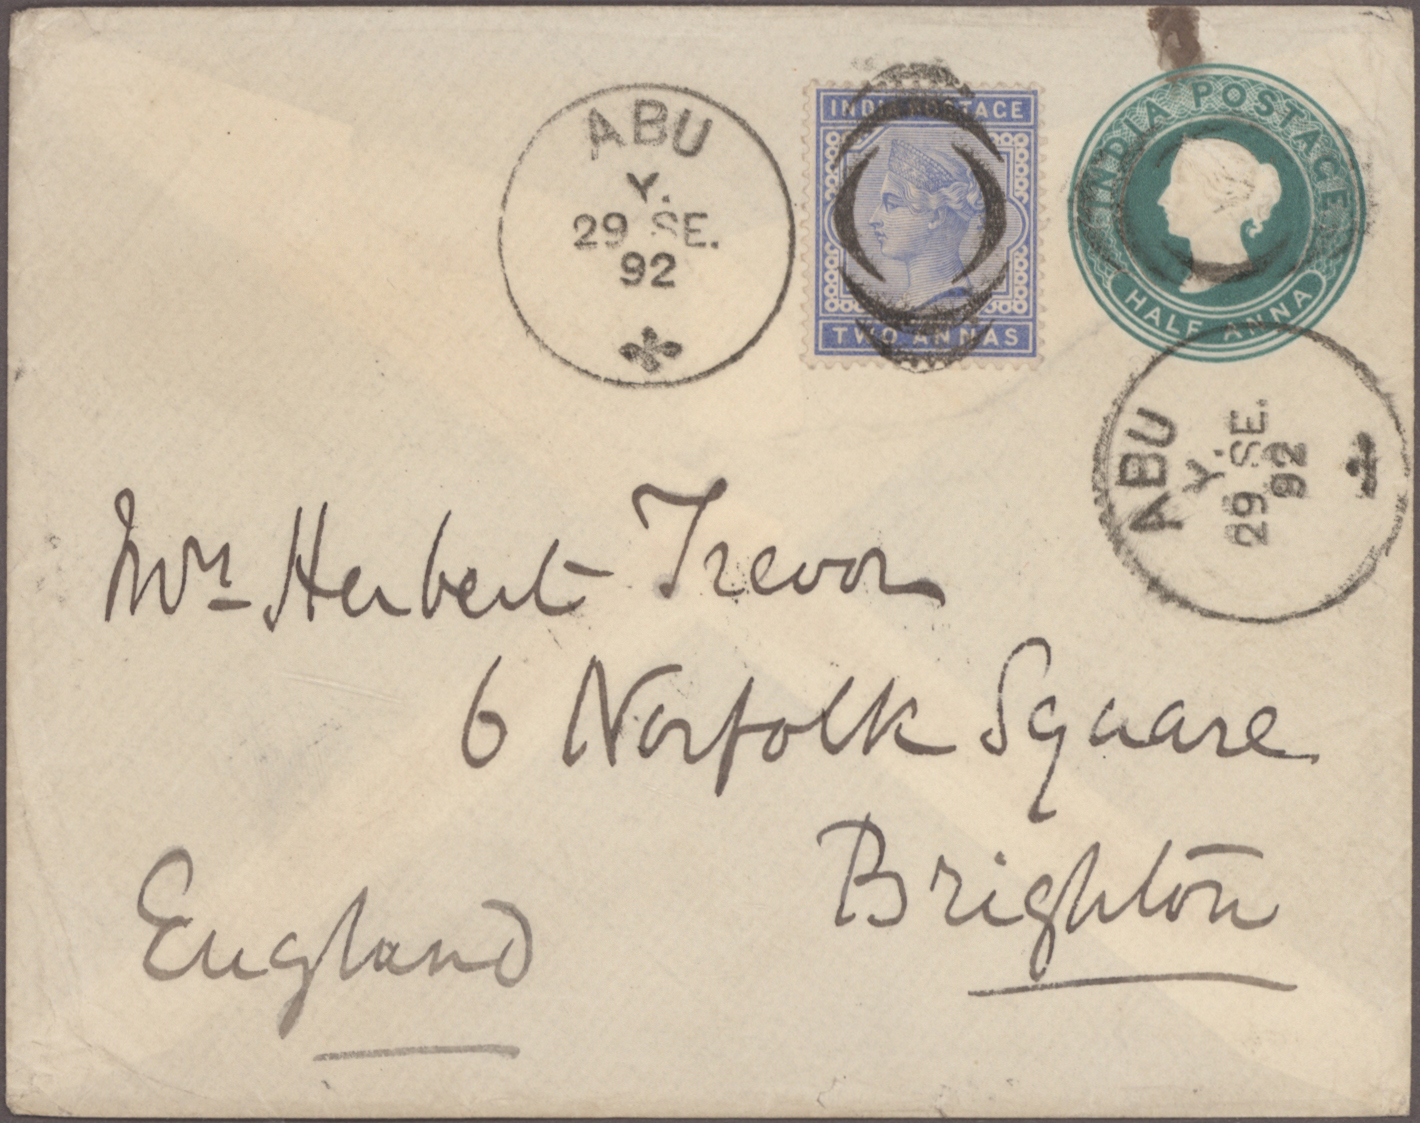 ABU
Y.
29 SE.
92
INDIA POSTAGE
TWO ANNAS
INDIA POSTAGE
HALF ANNA
ABU
Y.
29 SE.
92
Mrs Herbert Trevor
6 Norfolk Square
Brighton
England